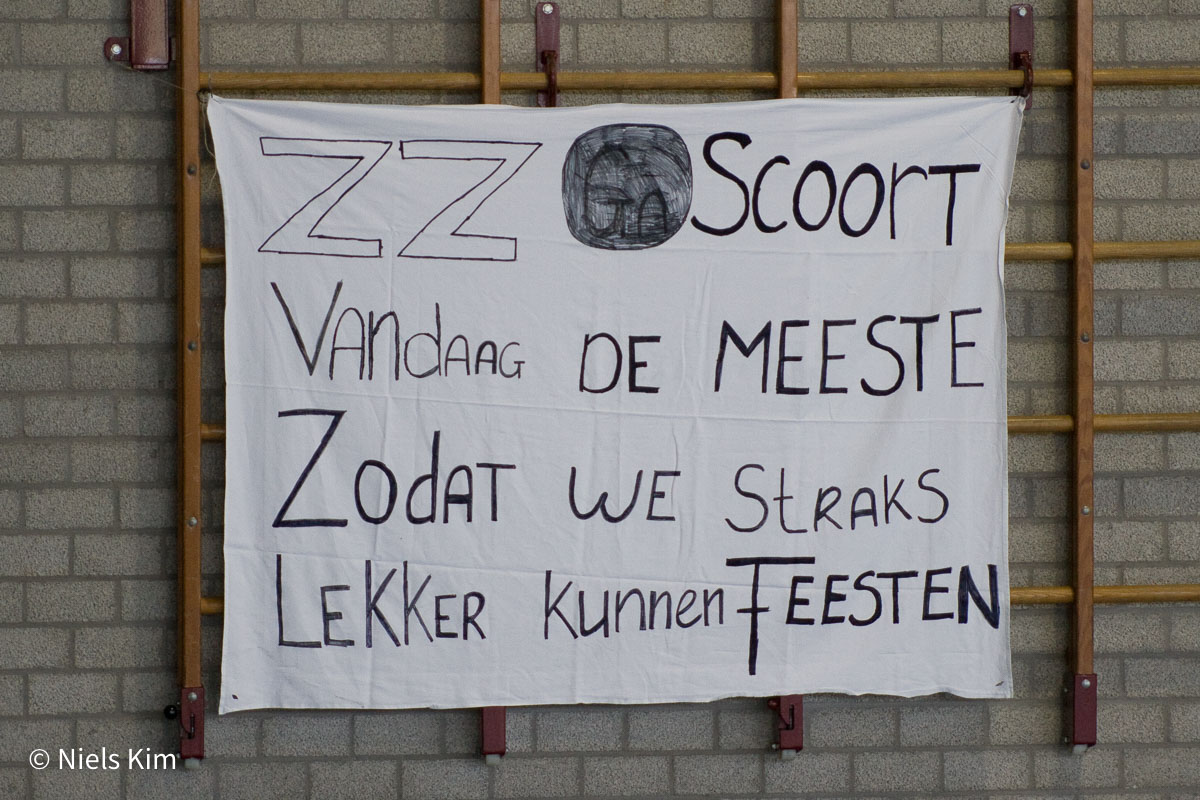 ZZ Scoort
Vandaag DE MEESTE
Zodat WE Straks
LEKKER kunnen FEESTEN
© Niels Kim